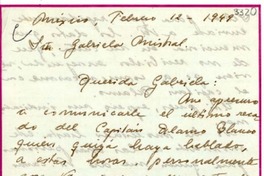 3320
México, Febrero 12 - 1949
Sra. Gabriela Mistral
Querida Gabriela:
Me apresuro
a comunicarle el último reca
do del Capitán Blanco
quien quizá haya hablado,
a estas horas, personalmente